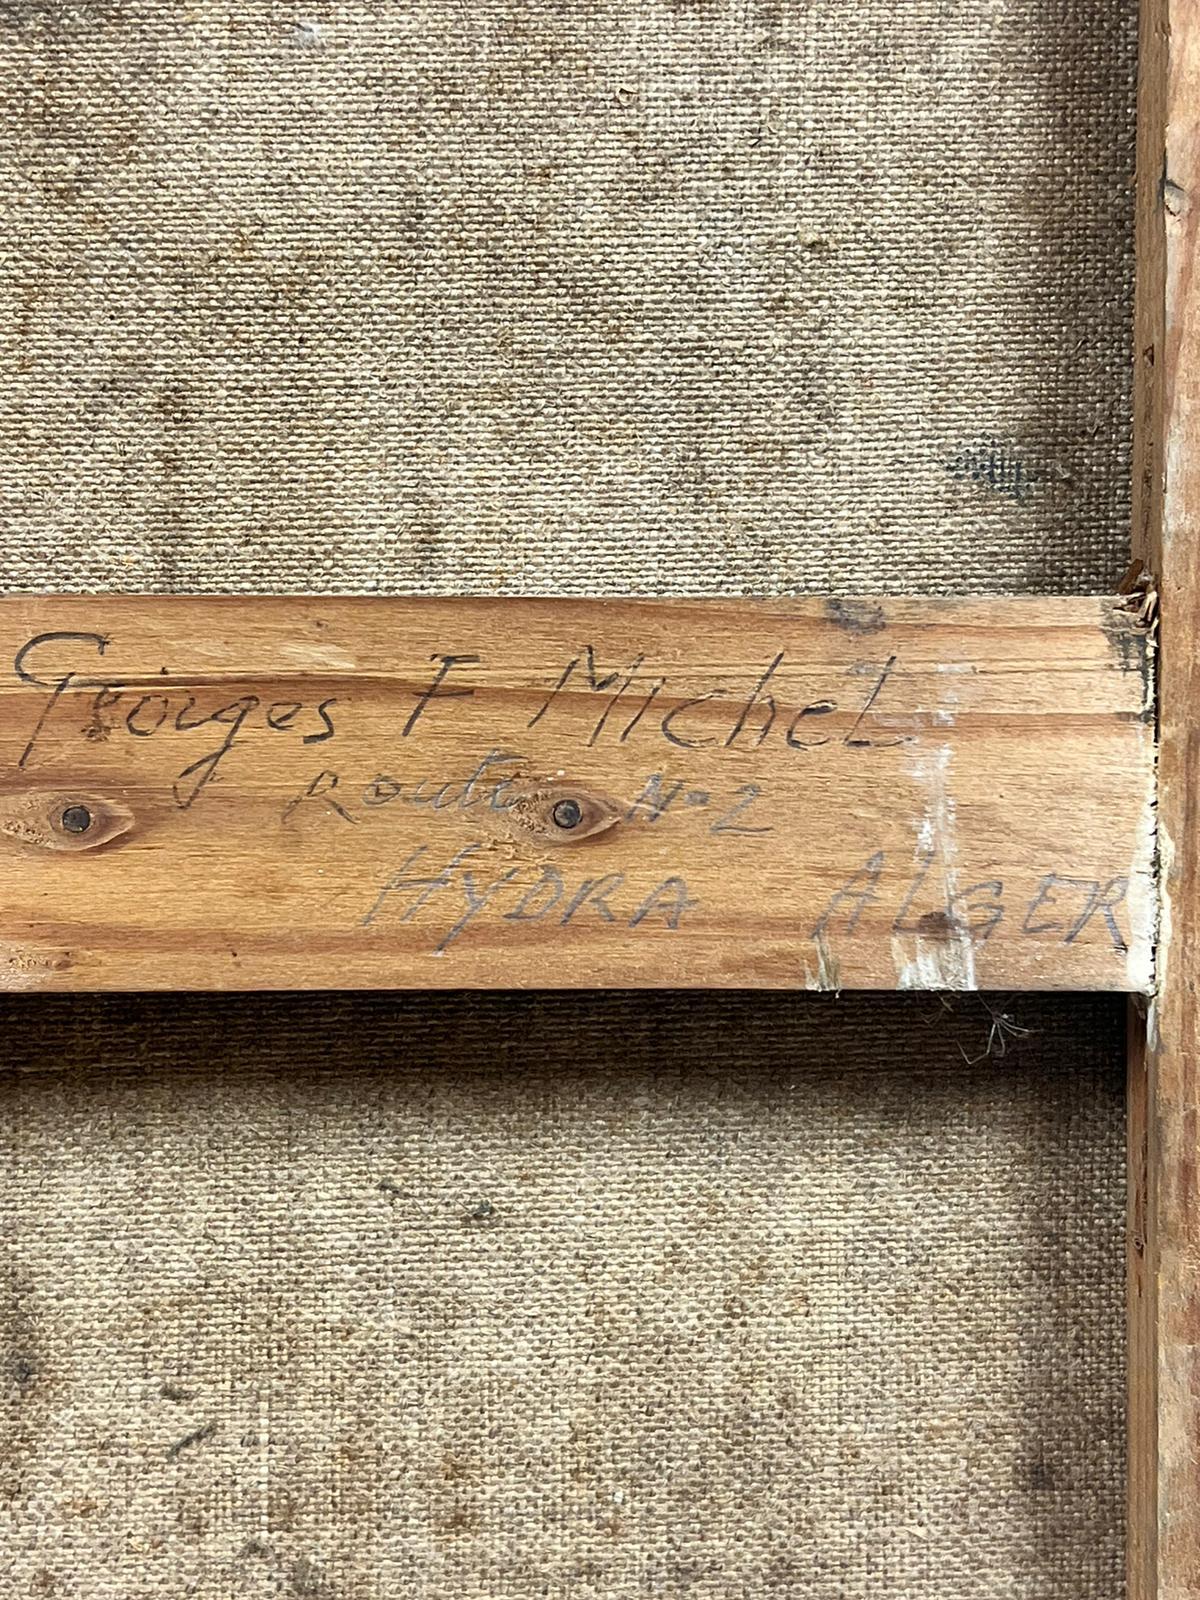 Georges F Michel
Route N=2
HYDRA ALGER